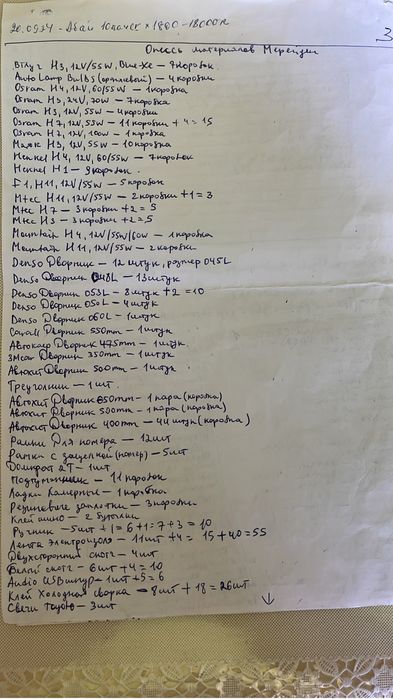 20.09.24 - Абай 10 пачек × 1800 - 18000тг
3
Опись материалов Мерекун
H3, 12V/55W, Blue-Xe - 9 коробок.
Auto Lamp Bulbs (оранжевый) - 4 коробки
Osram H4, 12V, 60/55W - 1 коробка
Osram H3, 24V, 70W - 7 коробка
Osram H3, 12V, 55W - 4 коробки
Osram H7, 12V, 55W - 11 коробки + 4 = 15
Osram H7, 12V, 100W - 1 коробка
Маяк H3, 12V, 55W - 10 коробки
Меикел H4, 12V, 60/55W - 7 коробок
Меикел H1 - 9 коробок.
F1, H11, 12V/55W - 5 коробок
Mtec H11, 12V/55W - 2 коробки + 1 = 3
Mtec H7 - 3 коробки + 2 = 5
Mtec H3 - 3 коробки + 2 = 5
Mountain H4, 12V/55W/60W - 1 коробка
Mountain H11, 12V/55W - 2 коробки
Denso Дворник - 12 штук, размер 045L
Denso Дворник 048L - 13 штук
Denso Дворник 053L - 8 штук + 2 = 10
Denso Дворник 050L - 4 штук
Denso Дворник 060L - 1 штук
Дворник 550mm - 1 штук
Дворник 475mm - 1 штук.
Дворник 350mm - 1 штук
Автохит Дворник 500mm - 1 штук
Треугольник - 1 шт.
Автохит Дворник 650mm - 1 пара (коробка)
Автохит Дворник 500mm - 1 пара (коробка)
Автохит Дворник 400mm - 44 штук (коробка)
Рамки для номера - 12 шт
Рамки с защелкой (номер) - 5 шт
2T - 1 шт
- 11 коробок
Латки Камерные - 1 коробка
Резиновые заплатки - 3 коробки
Клей шино - 2 бутылки
Ручник - 5 шт + 1 = 6 + 1 = 7 + 3 = 10
Лента электроизол - 11 шт + 4 = 15 + 40 = 55
Двухсторонний скотч - 4 шт
Белый скотч - 6 шт + 4 = 10
Audio USB шнур - 1 шт + 5 = 6
Клей Холодная сварка - 8 шт + 18 = 26 шт
Свечи - 3 шт
↓